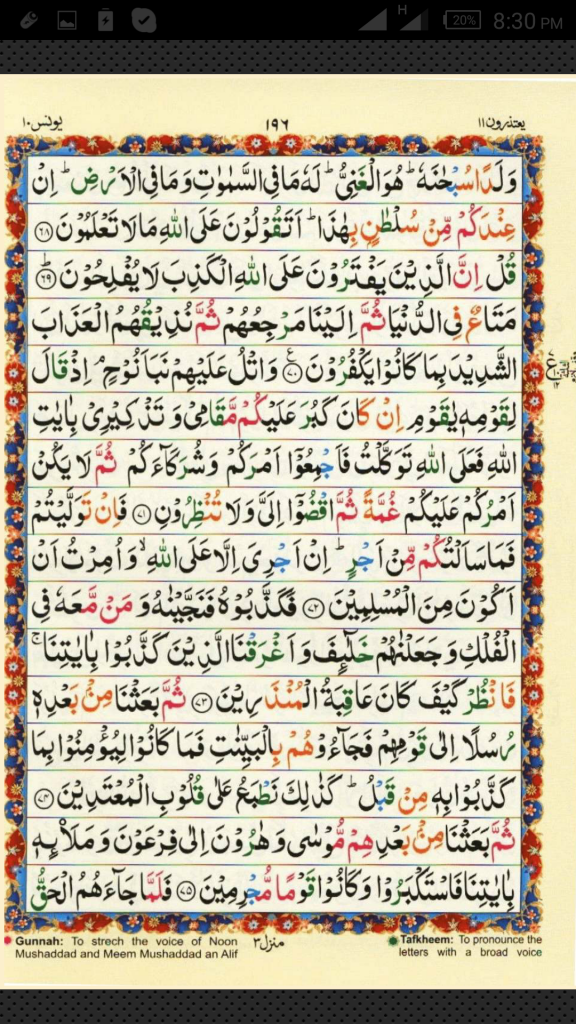 H 20% 8:30 PM
یعتذرون۱۱ ۱۹۶ یونس۱۰
وَلَدًا سُبْحٰنَهٗ ؕ هُوَ الْغَنِیُّ ؕ لَهٗ مَا فِی السَّمٰوٰتِ وَمَا فِی الْاَرْضِ ؕ اِنْ
عِنْدَكُمْ مِّنْ سُلْطٰنٍۭ بِهٰذَا ؕ اَتَقُوْلُوْنَ عَلَی اللّٰهِ مَا لَا تَعْلَمُوْنَ ﴿۶۸﴾
قُلْ اِنَّ الَّذِیْنَ یَفْتَرُوْنَ عَلَی اللّٰهِ الْكَذِبَ لَا یُفْلِحُوْنَ ﴿۶۹﴾ؕ
مَتَاعٌ فِی الدُّنْیَا ثُمَّ اِلَیْنَا مَرْجِعُهُمْ ثُمَّ نُذِیْقُهُمُ الْعَذَابَ
الشَّدِیْدَ بِمَا كَانُوْا یَكْفُرُوْنَ ﴿۷۰﴾ وَاتْلُ عَلَیْهِمْ نَبَاَ نُوْحٍ ۘ اِذْ قَالَ
لِقَوْمِهٖ یٰقَوْمِ اِنْ كَانَ كَبُرَ عَلَیْكُمْ مَّقَامِیْ وَ تَذْكِیْرِیْ بِاٰیٰتِ
اللّٰهِ فَعَلَی اللّٰهِ تَوَكَّلْتُ فَاَجْمِعُوْۤا اَمْرَكُمْ وَشُرَكَآءَكُمْ ثُمَّ لَا یَكُنْ
اَمْرُكُمْ عَلَیْكُمْ غُمَّةً ثُمَّ اقْضُوْۤا اِلَیَّ وَلَا تُنْظِرُوْنِ ﴿۷۱﴾ فَاِنْ تَوَلَّیْتُمْ
فَمَا سَاَلْتُكُمْ مِّنْ اَجْرٍ ؕ اِنْ اَجْرِیَ اِلَّا عَلَی اللّٰهِ ۙ وَاُمِرْتُ اَنْ
اَكُوْنَ مِنَ الْمُسْلِمِیْنَ ﴿۷۲﴾ فَكَذَّبُوْهُ فَنَجَّیْنٰهُ وَ مَنْ مَّعَهٗ فِی
الْفُلْكِ وَ جَعَلْنٰهُمْ خَلٰٓىِٕفَ وَ اَغْرَقْنَا الَّذِیْنَ كَذَّبُوْا بِاٰیٰتِنَا ۚ
فَانْظُرْ كَیْفَ كَانَ عَاقِبَةُ الْمُنْذَرِیْنَ ﴿۷۳﴾ ثُمَّ بَعَثْنَا مِنْۢ بَعْدِهٖ
رُسُلًا اِلٰی قَوْمِهِمْ فَجَآءُوْهُمْ بِالْبَیِّنٰتِ فَمَا كَانُوْا لِیُؤْمِنُوْا بِمَا
كَذَّبُوْا بِهٖ مِنْ قَبْلُ ؕ كَذٰلِكَ نَطْبَعُ عَلٰی قُلُوْبِ الْمُعْتَدِیْنَ ﴿۷۴﴾
ثُمَّ بَعَثْنَا مِنْۢ بَعْدِهِمْ مُّوْسٰی وَ هٰرُوْنَ اِلٰی فِرْعَوْنَ وَ مَلَا۟ىِٕهٖ
بِاٰیٰتِنَا فَاسْتَكْبَرُوْا وَ كَانُوْا قَوْمًا مُّجْرِمِیْنَ ﴿۷۵﴾ فَلَمَّا جَآءَهُمُ الْحَقُّ
Gunnah: To strech the voice of Noon
Mushaddad and Meem Mushaddad an Alif
منزل۳
Tafkheem: To pronounce the
letters with a broad voice